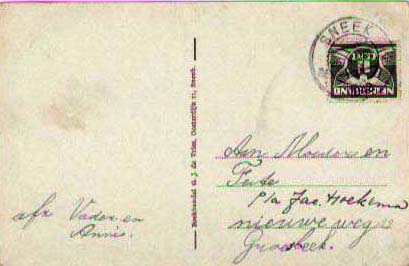 SNEEK
Boekhandel G. J. de Vries, Oosterdijk 11, Sneek.
afz Vader en
Annie.
Aan Moeder en
Feite
p/a Jac. Hoekema
nieuwe weg
Grosbeek.